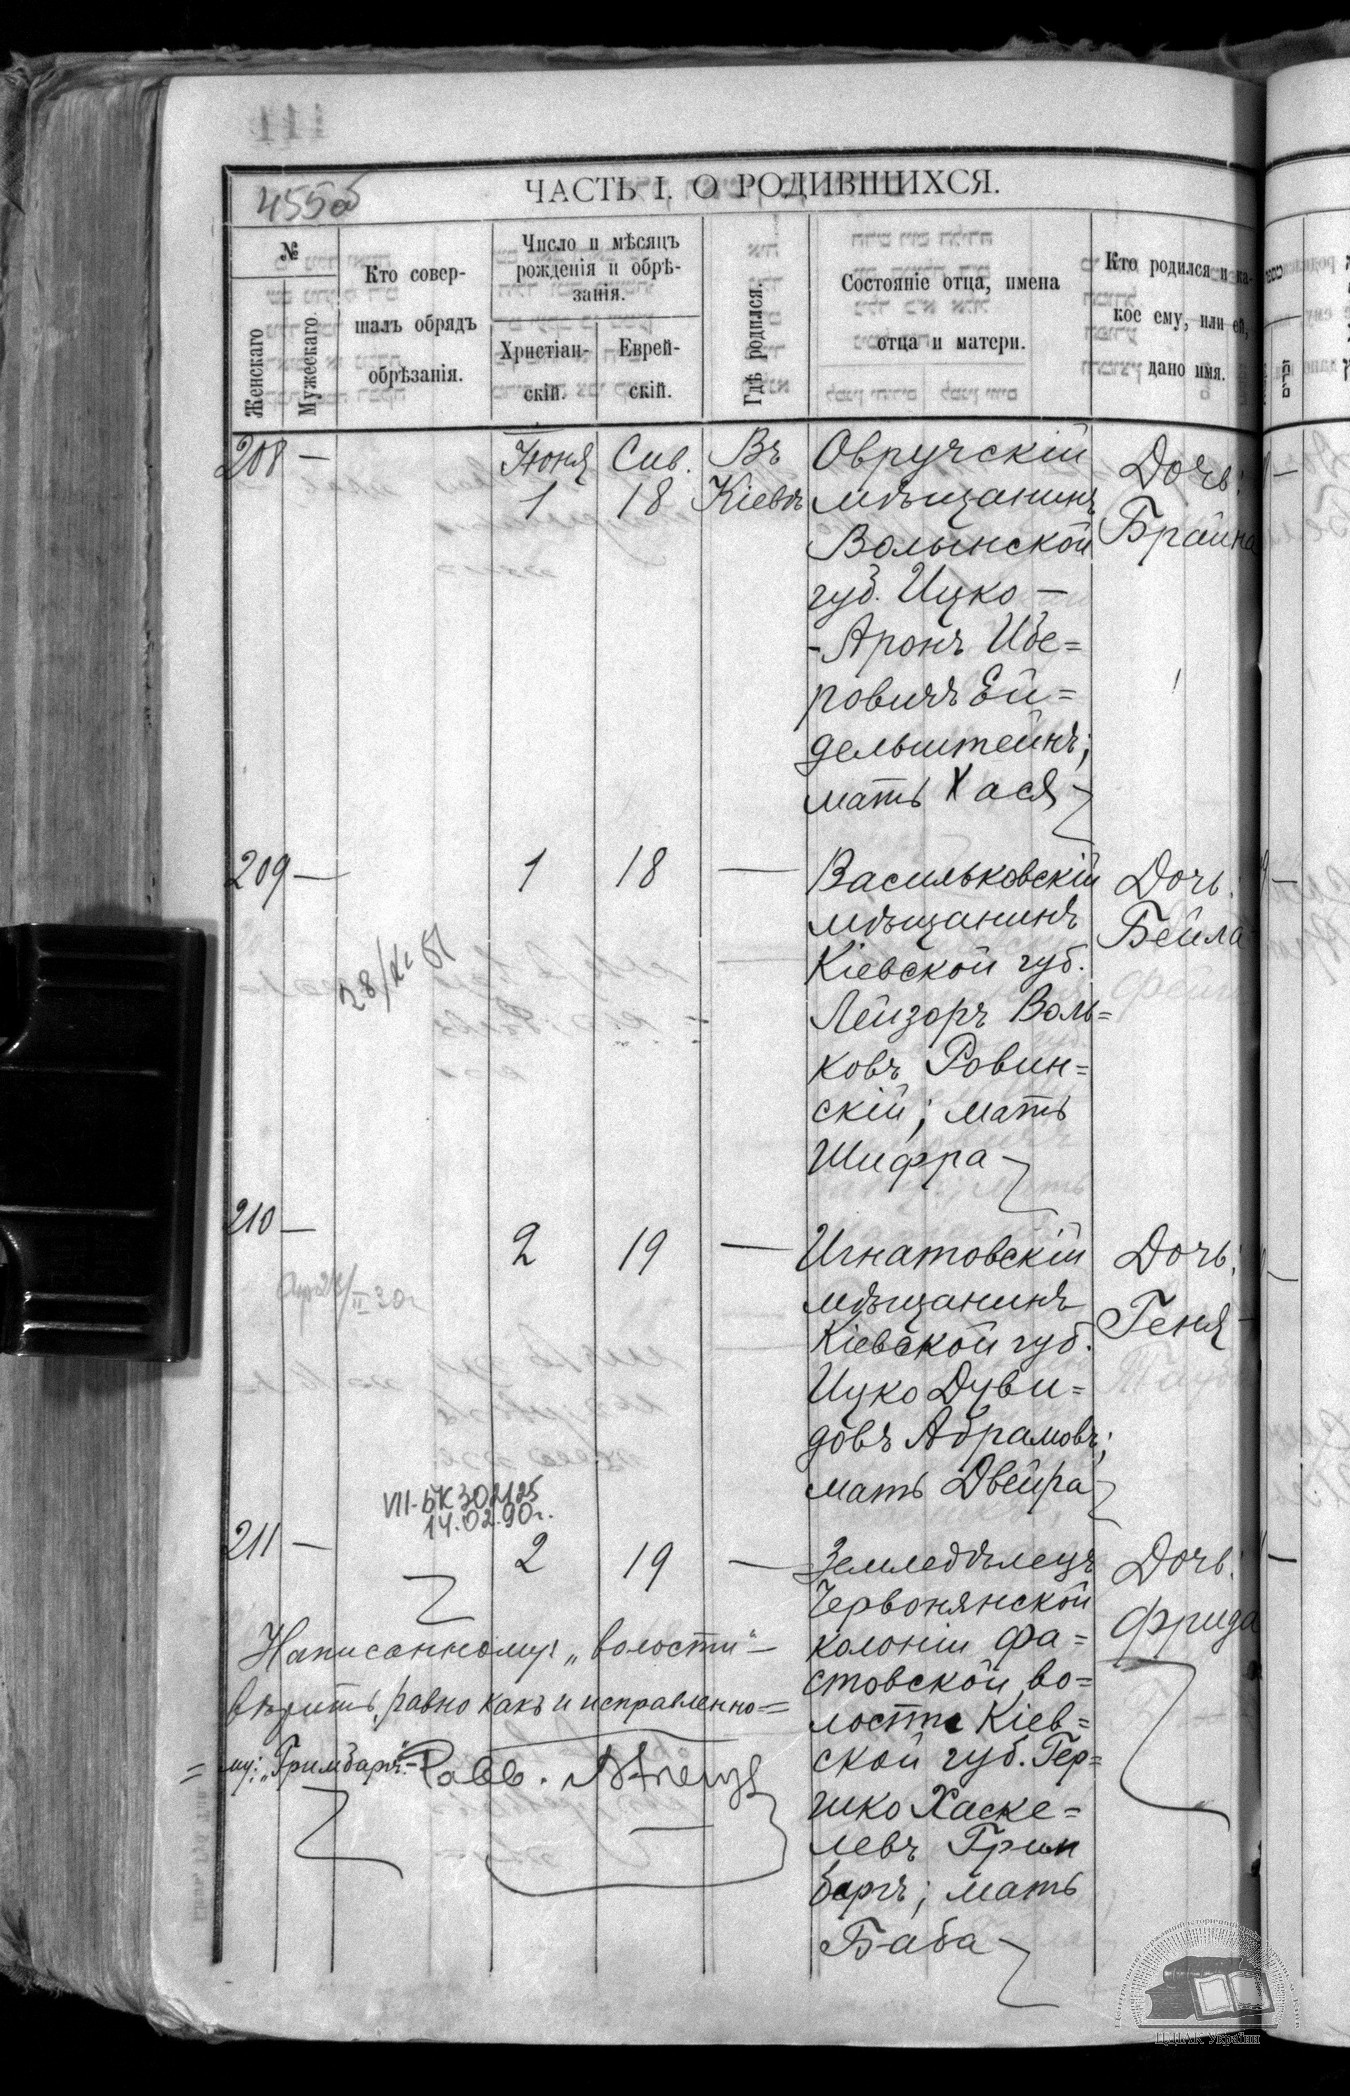 455 об
ЧАСТЬ I. О РОДИВШИХСЯ.
№
Женскаго
Мужескаго
Кто совер-
шалъ обрядъ
обрѣзанія.
Число и мѣсяцъ
рожденія и обрѣ-
занія.
Христіан-
скій.
Еврей-
скій.
Гдѣ родился.
Состояніе отца, имена
отца и матери.
Кто родился и ка-
кое ему, или ей,
дано имя.
208 —
Іюня
1
Сив.
18
Въ
Кіевѣ
Овручскій
мѣщанинъ
Волынской
губ. Ицко —
-Аронъ Ибе=
ровичъ Ей=
дельштейнъ;
мать Хася
Дочь:
Брайна
209 —
1
18
—
Васильковскій
мѣщанинъ
Кіевской губ.
Лейзоръ Воль=
ковъ Ровин=
скій; мать
Шифра
Дочь:
Бейла
28/XI 51
210 —
2
19
—
Игнатовскій
мѣщанинъ
Кіевской губ.
Ицко Дуви=
довъ Абрамовъ;
мать Двейра
Дочь:
Геня
VII-БК 302125
14.02.90г.
211 —
2
19
—
Земледѣлецъ
Червонянской
колоніи Фа=
стовской во=
лости Кіев=
ской губ. Гер=
шко Хаске=
левъ Грим
баргъ; мать
Баба
Дочь:
Фрида
Написанному: „волости“ —
вѣрить, равно какъ и исправленно=
=му: „Гримбаргъ“. —
Равв.
ЦДІАК України